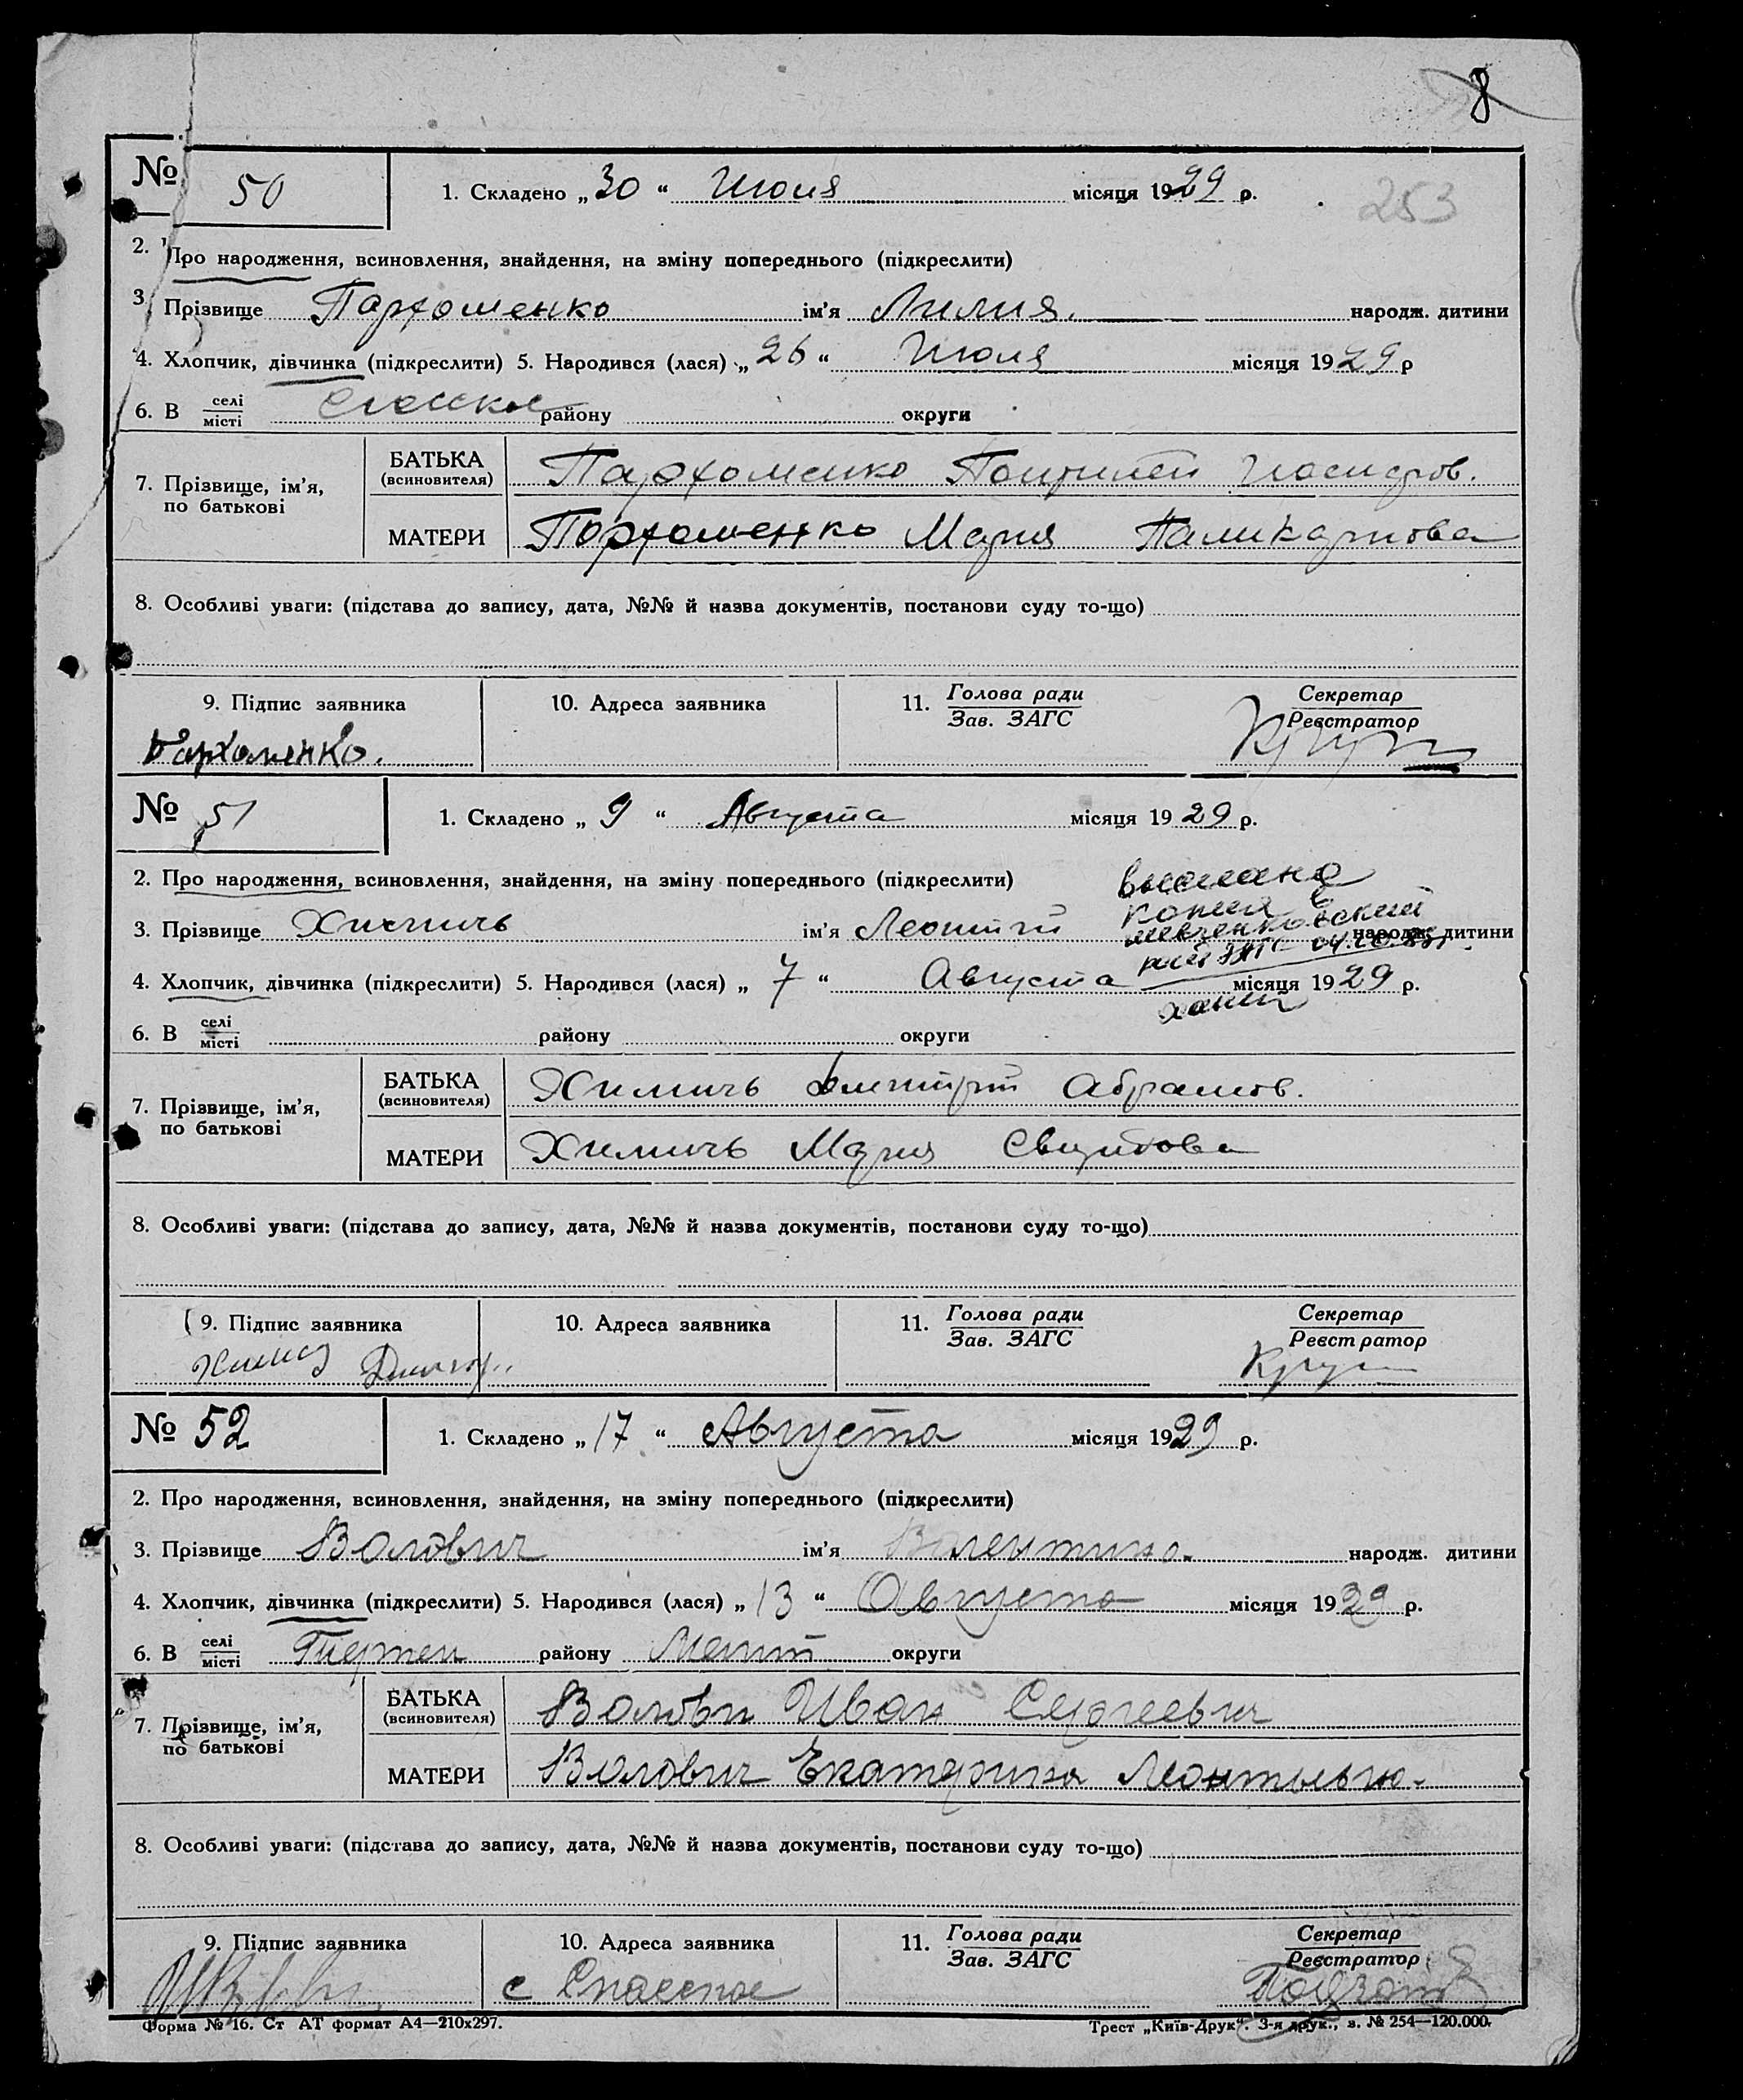 8
№ 50
1. Складено „30“ Июля місяця 1929 р.
253
2. Про народження, всиновлення, знайдення, на зміну попереднього (підкреслити)
3. Прізвище Пархоменко ім'я Лилия. народж. дитини
4. Хлопчик, дівчинка (підкреслити) 5. Народився (лася) „26“ Июля місяця 1929 р
6. В селі/місті району округи
7. Прізвище, ім'я, по батькові
БАТЬКА (всиновителя) Пархоменко
МАТЕРИ Пархоменко Мария Паликарпова
8. Особливі уваги: (підстава до запису, дата, №№ й назва документів, постанови суду то-що)
9. Підпис заявника 10. Адреса заявника 11. Голова ради/Зав. ЗАГС Секретар/Реєстратор
Пархоменко.
№ 51
1. Складено „9“ Августа місяця 1929 р.
2. Про народження, всиновлення, знайдення, на зміну попереднього (підкреслити)
выслана
копия в
шевченковский
3. Прізвище Химичь ім'я Леонтий народж. дитини
4. Хлопчик, дівчинка (підкреслити) 5. Народився (лася) „7“ Августа місяця 1929 р.
6. В селі/місті району округи
7. Прізвище, ім'я, по батькові
БАТЬКА (всиновителя) Химичь Дмитрий Абрамов.
МАТЕРИ Химичь Мария
8. Особливі уваги: (підстава до запису, дата, №№ й назва документів, постанови суду то-що)
9. Підпис заявника 10. Адреса заявника 11. Голова ради/Зав. ЗАГС Секретар/Реєстратор
№ 52
1. Складено „17“ Августа місяця 1929 р.
2. Про народження, всиновлення, знайдення, на зміну попереднього (підкреслити)
3. Прізвище Волович ім'я Валентина. народж. дитини
4. Хлопчик, дівчинка (підкреслити) 5. Народився (лася) „13“ Августа місяця 1929 р.
6. В селі/місті району округи
7. Прізвище, ім'я, по батькові
БАТЬКА (всиновителя) Волович Иван Сергеевич
МАТЕРИ Волович Екатерина
8. Особливі уваги: (підстава до запису, дата, №№ й назва документів, постанови суду то-що)
9. Підпис заявника 10. Адреса заявника 11. Голова ради/Зав. ЗАГС Секретар/Реєстратор
с Спасское
Форма № 16. Ст АТ формат А4—210х297. Трест „Київ-Друк“. 3-я друк., з. № 254—120.000.